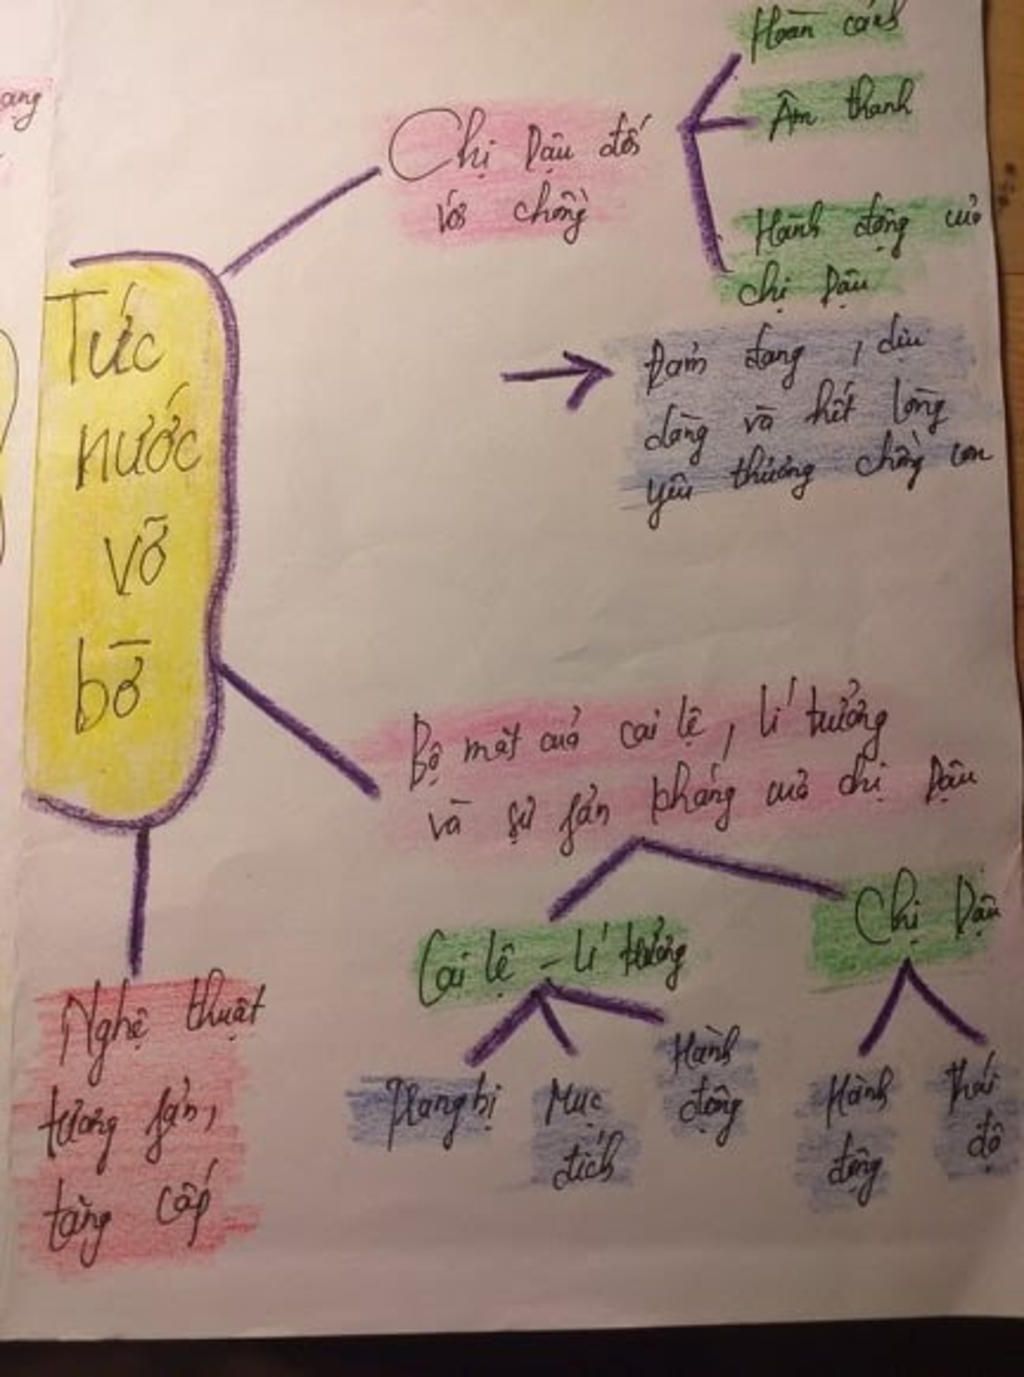 ang
Tức
nước
vỡ
bờ
Chị Dậu đối
với chồng
Hoàn cảnh
Âm thanh
Hành động của
chị Dậu
Đảm đang, dịu
dàng và hết lòng
yêu thương chồng con
Bộ mặt của cai lệ, lí trưởng
và sự phản kháng của chị Dậu
Cai lệ - lí trưởng
Mục
đích
Hành
động
Chị Dậu
Hành
động
Thái
độ
Nghệ thuật
tương phản,
tăng cấp